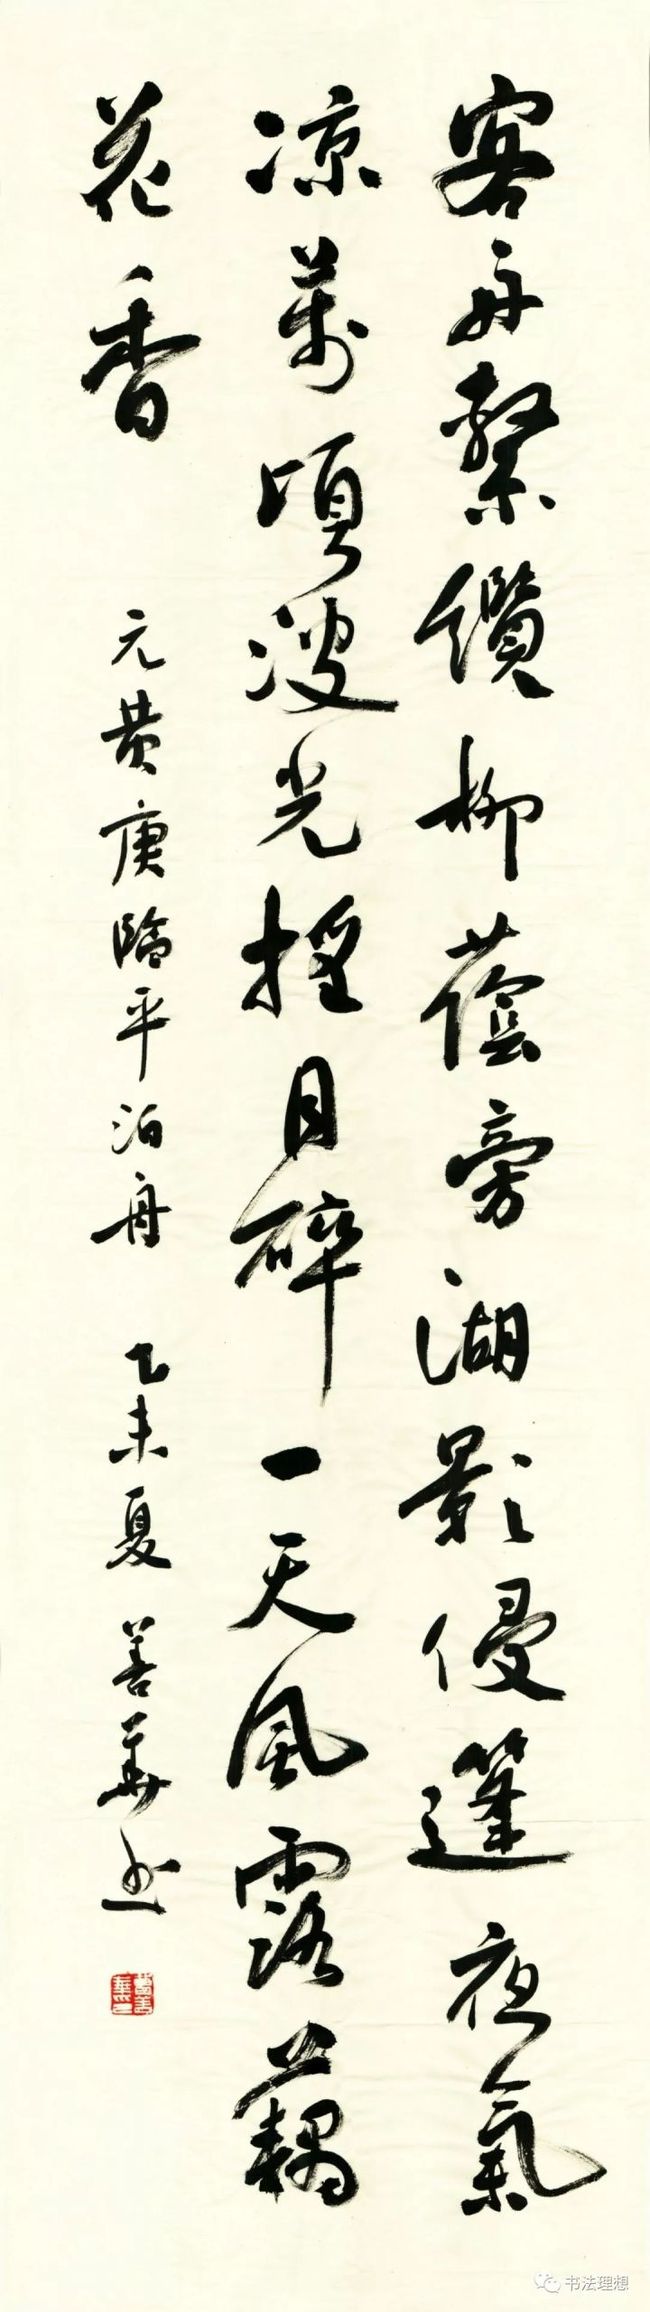 客舟繫纜柳蔭旁湖影侵篷夜氣
凉萬頃波光摇月碎一天風露藕
花香 元黃庚臨平泊舟 乙未夏 善華书
书法理想